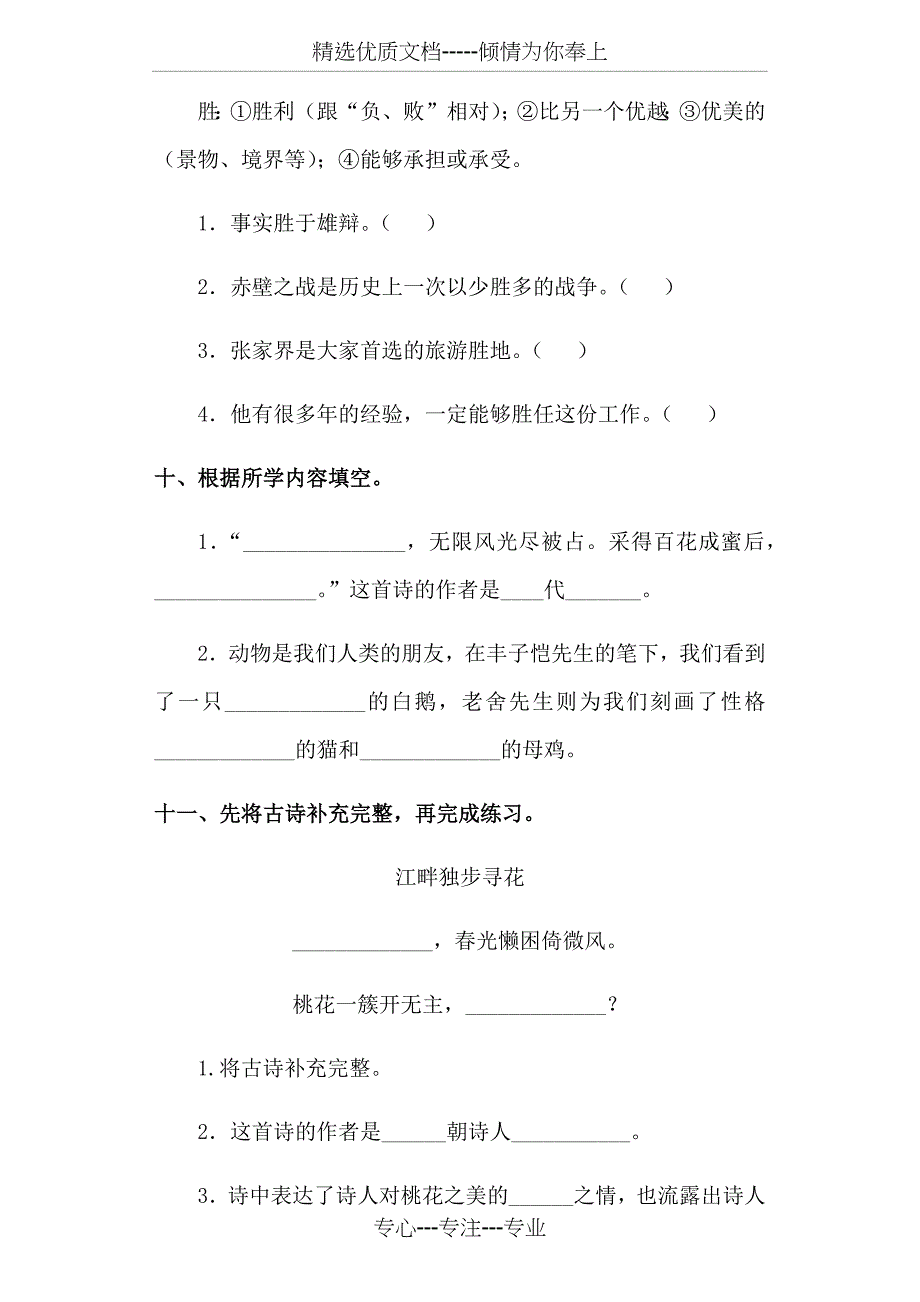 精选优质文档-----倾情为你奉上
胜：①胜利（跟“负、败”相对）；②比另一个优越；③优美的
（景物、境界等）；④能够承担或承受。
1．事实胜于雄辩。（　　）
2．赤壁之战是历史上一次以少胜多的战争。（　　）
3．张家界是大家首选的旅游胜地。（　　）
4．他有很多年的经验，一定能够胜任这份工作。（　　）
十、根据所学内容填空。
1．“_______________，无限风光尽被占。采得百花成蜜后，
_______________。”这首诗的作者是____代_______。
2．动物是我们人类的朋友，在丰子恺先生的笔下，我们看到
了一只_____________的白鹅，老舍先生则为我们刻画了性格
_____________的猫和_____________的母鸡。
十一、先将古诗补充完整，再完成练习。
江畔独步寻花
_____________，春光懒困倚微风。
桃花一簇开无主，_____________？
1.将古诗补充完整。
2．这首诗的作者是______朝诗人___________。
3．诗中表达了诗人对桃花之美的______之情，也流露出诗人
专心---专注---专业